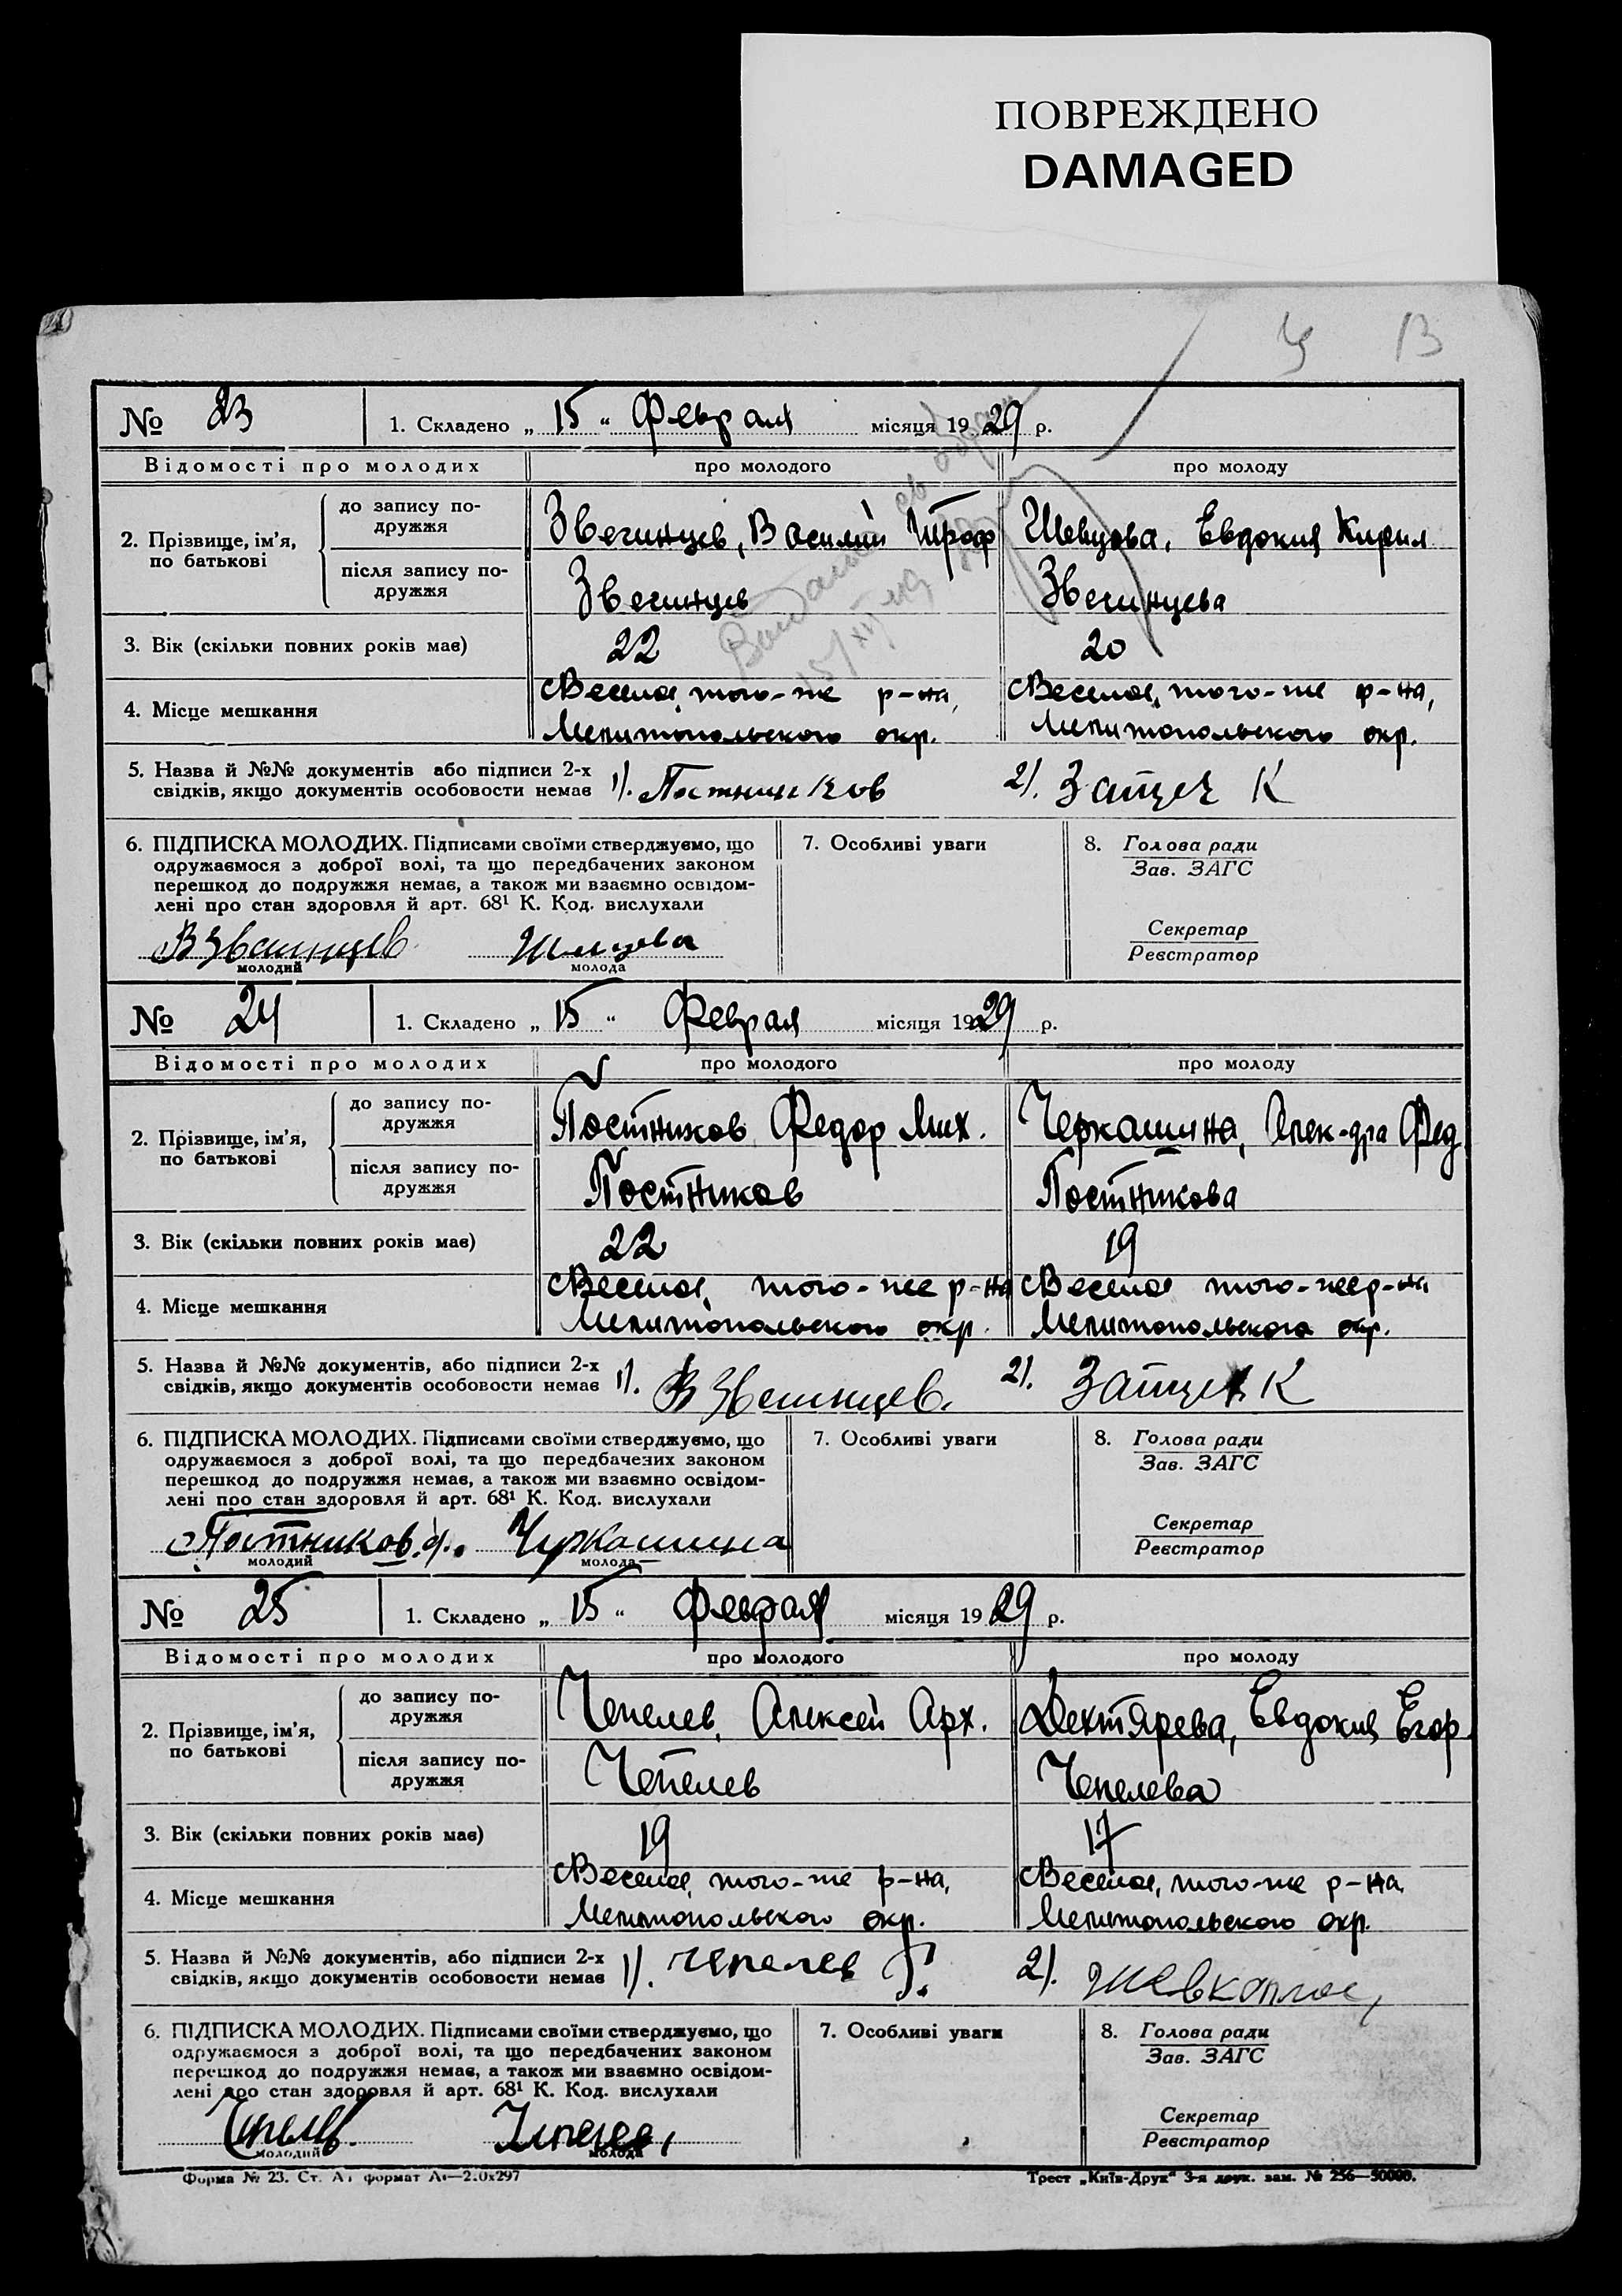 ПОВРЕЖДЕНО
DAMAGED
№ 23 1. Складено „ 15 “ Февраля місяця 1929 р.
Відомості про молодих про молодого про молоду
2. Прізвище, ім'я, по батькові
до запису по-
дружжя
Звегинцев, Василий Троф Шевцова, Евдокия Кирил
після запису по-
дружжя
Звегинцев Звегинцева
3. Вік (скільки повних років має) 22 20
4. Місце мешкання
Веселое, того-же р-на, Веселое, того-же р-на,
Мелитопольского окр. Мелитопольского окр.
5. Назва й №№ документів або підписи 2-х
свідків, якщо документів особовости немає 1). Постников 2). К
6. ПІДПИСКА МОЛОДИХ. Підписами своїми стверджуємо, що
одружаємося з доброї волі, та що передбачених законом
перешкод до подружжя немає, а також ми взаємно освідом-
лені про стан здоровля й арт. 68¹ К. Код. вислухали
В Звегинцев Шевцова
молодий молода
7. Особливі уваги
8. Голова ради
Зав. ЗАГС
Секретар
Реєстратор
№ 24 1. Складено „ 15 “ Февраля місяця 1929 р.
Відомості про молодих про молодого про молоду
2. Прізвище, ім'я, по батькові
до запису по-
дружжя
Постников Федор Мих. Черкашина, Алек-дра Фед.
після запису по-
дружжя
Постников Постникова
3. Вік (скільки повних років має) 22 19
4. Місце мешкання
Веселое, того-же р-на Веселое того-же р-на
Мелитопольского окр. Мелитопольского окр.
5. Назва й №№ документів, або підписи 2-х
свідків, якщо документів особовости немає 1). В Звегинцев. 2). К
6. ПІДПИСКА МОЛОДИХ. Підписами своїми стверджуємо, що
одружаємося з доброї волі, та що передбачених законом
перешкод до подружжя немає, а також ми взаємно освідом-
лені про стан здоровля й арт. 68¹ К. Код. вислухали
Постников.ф. Черкашина
молодий молода
7. Особливі уваги
8. Голова ради
Зав. ЗАГС
Секретар
Реєстратор
№ 25 1. Складено „ 15 “ Февраля місяця 1929 р.
Відомості про молодих про молодого про молоду
2. Прізвище, ім'я, по батькові
до запису по-
дружжя
Чепелев, Алексей Арх. Дехтярева, Евдокия Егор.
після запису по-
дружжя
Чепелев Чепелева
3. Вік (скільки повних років має) 19 17
4. Місце мешкання
Веселое, того-же р-на, Веселое, того-же р-на,
Мелитопольского окр. Мелитопольского окр.
5. Назва й №№ документів, або підписи 2-х
свідків, якщо документів особовости немає 1). Чепелев 2).
6. ПІДПИСКА МОЛОДИХ. Підписами своїми стверджуємо, що
одружаємося з доброї волі, та що передбачених законом
перешкод до подружжя немає, а також ми взаємно освідом-
лені про стан здоровля й арт. 68¹ К. Код. вислухали
Чепелев
молодий молода
7. Особливі уваги
8. Голова ради
Зав. ЗАГС
Секретар
Реєстратор
Форма № 23. Ст. А₁ формат А₄—210х297 Трест „Київ-Друк“ 3-я друк. зам. № 256—50000.